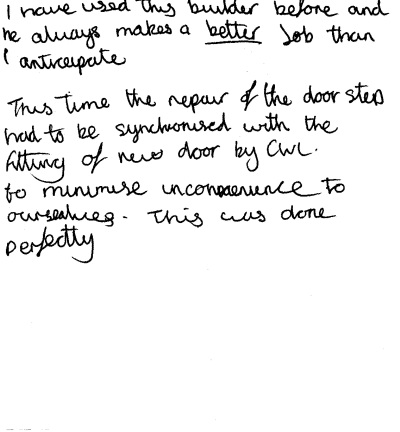 I have used this builder before and
he always makes a better job than
I anticipate
This time the repair of the door step
had to be synchronised with the
fitting of new door by CWL.
to minimise inconvenience to
ourselves. This was done
perfectly